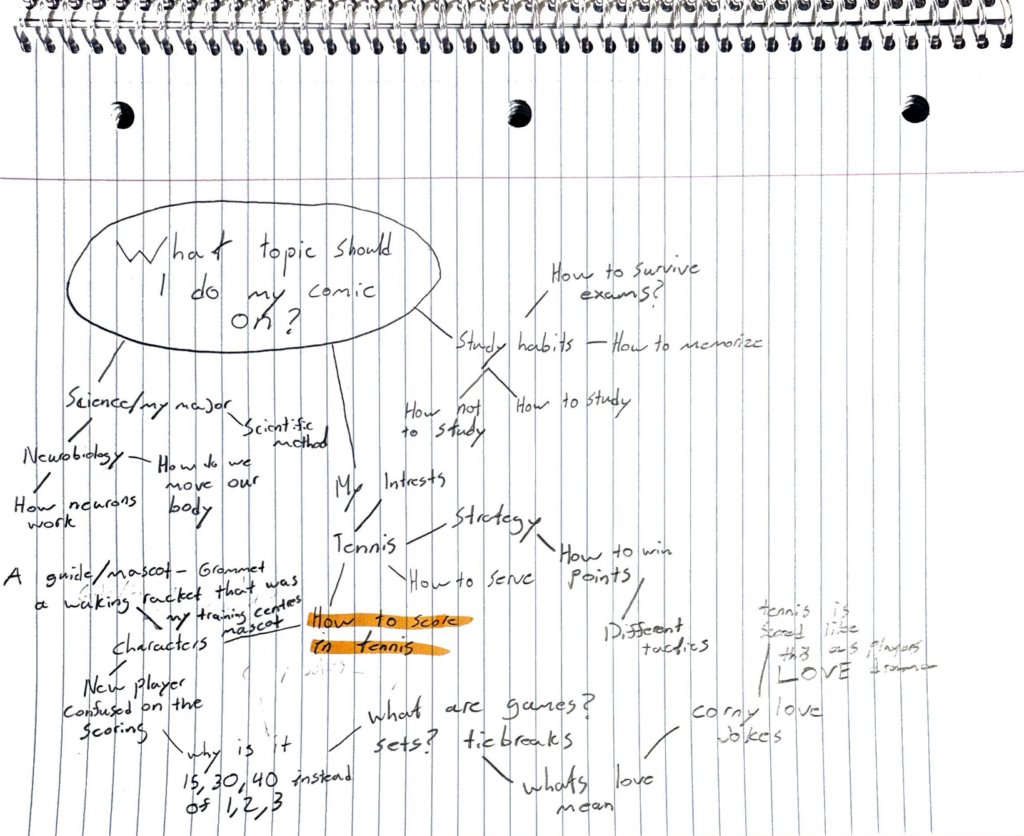 What topic should
I do my comic
on?
How to survive
exams?
Study habits
How to memorize
How not
to study
How to study
Science/my major
Scientific
method
Neurobiology
How do we
move our
body
How neurons
work
My Intrests
Tennis
Strategy
How to win
points
Different
tactics
How to serve
How to score
in tennis
A guide/mascot - Grommet
a walking racket that was
my training centres
mascot
characters
New player
confused on the
scoring
why is it
15, 30, 40 instead
of 1, 2, 3
what are games?
sets? tiebreaks
whats love
mean
corny love
jokes
tennis is
scored like
this as players
LOVE drama